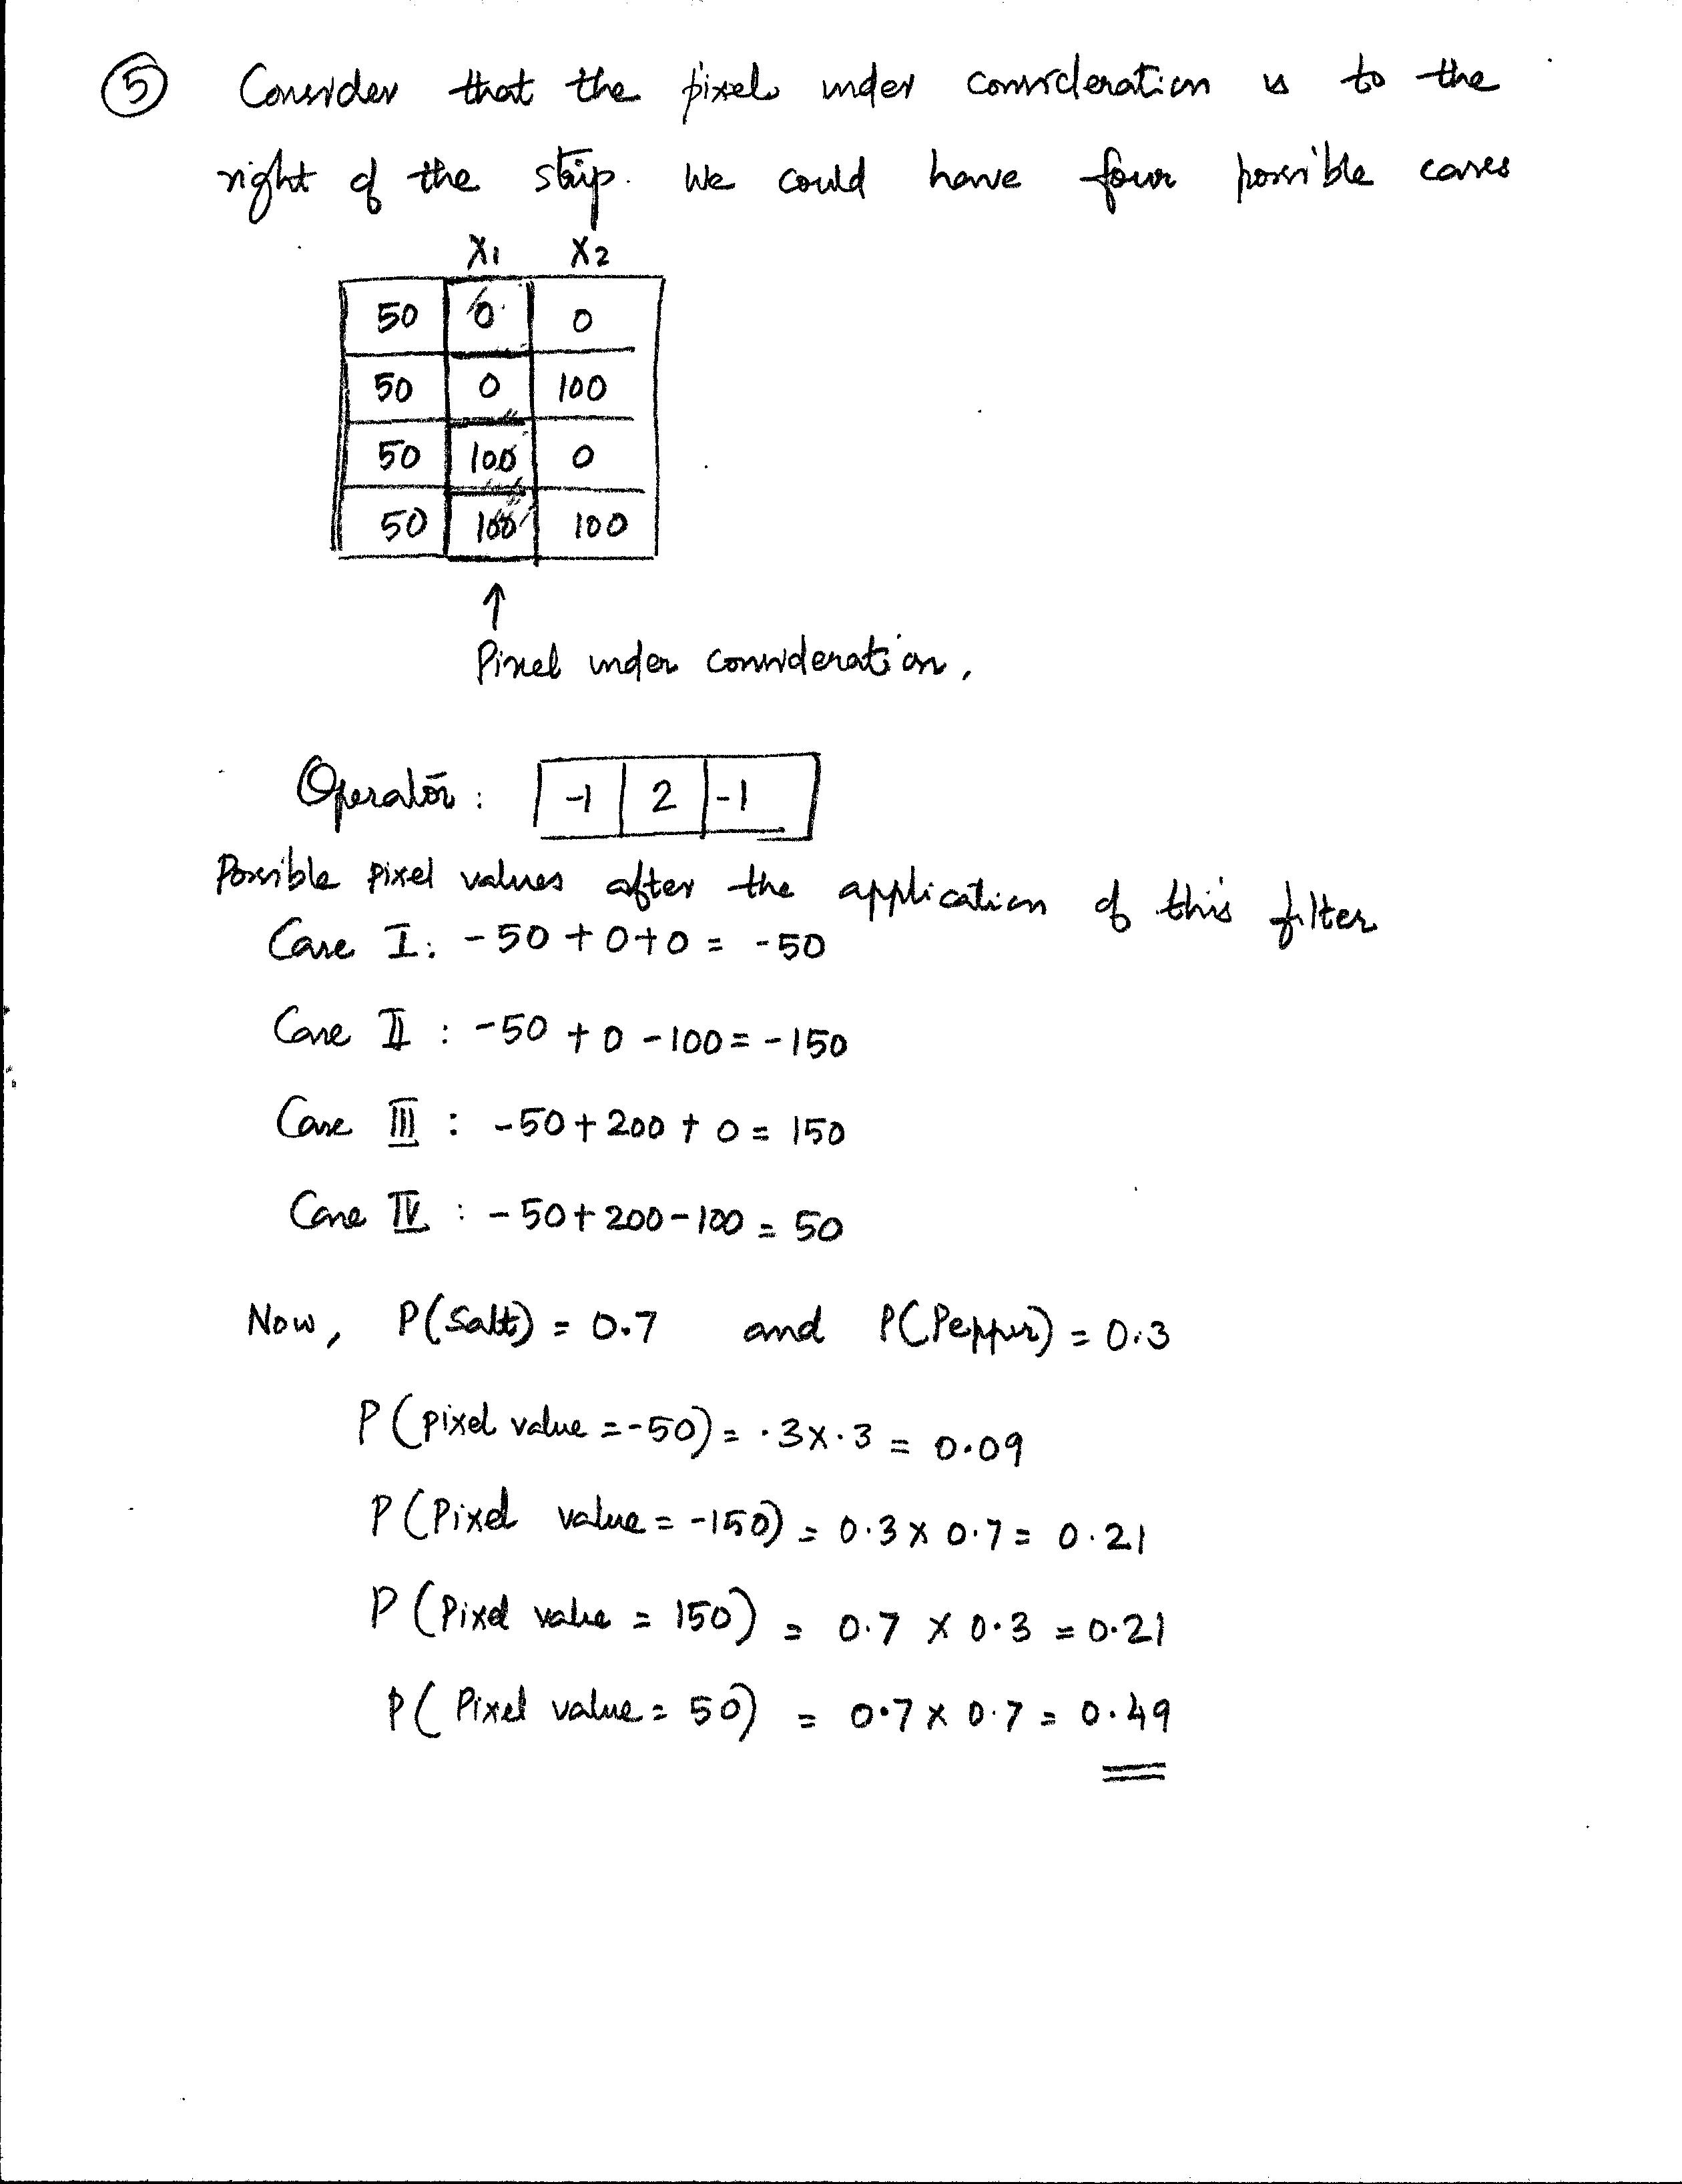 ⑤ Consider that the pixel under consideration is to the
right of the strip. We could have four possible cases
X1 X2
50 0 0
50 0 100
50 100 0
50 100 100
↑
Pixel under consideration,
Operator : -1 2 -1
Possible pixel values after the application of this filter
Case I: -50 + 0 + 0 = -50
Case II : -50 + 0 - 100 = -150
Case III : -50 + 200 + 0 = 150
Case IV : -50 + 200 - 100 = 50
Now, P(Salt) = 0.7 and P(Pepper) = 0.3
P(pixel value = -50) = .3 x .3 = 0.09
P(Pixel value = -150) = 0.3 x 0.7 = 0.21
P(Pixel value = 150) = 0.7 x 0.3 = 0.21
P(Pixel value = 50) = 0.7 x 0.7 = 0.49